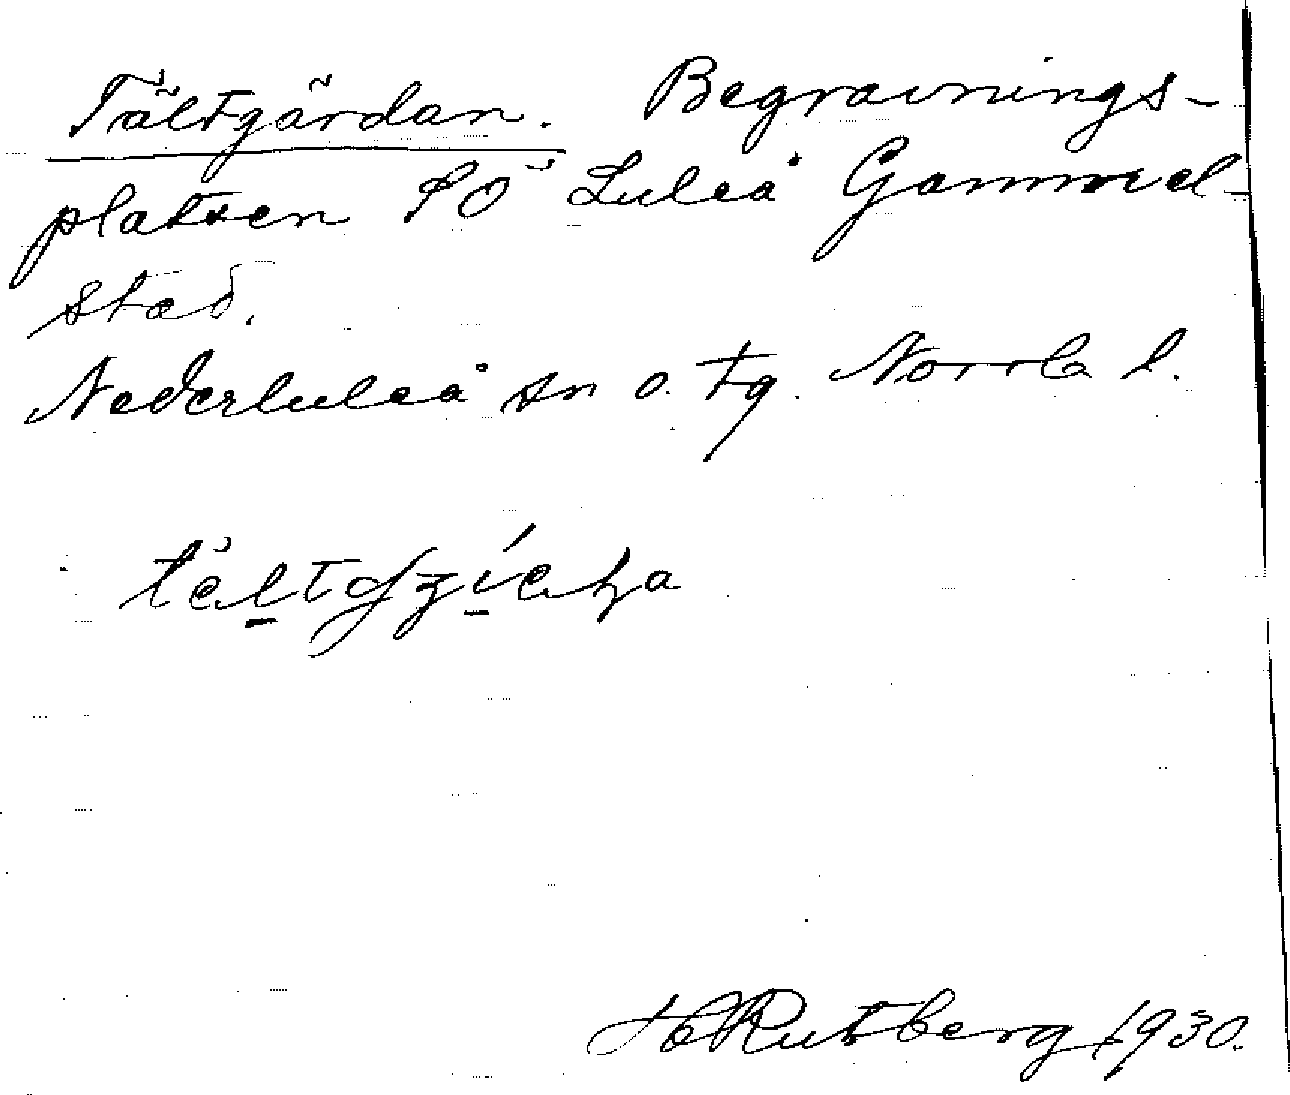 Tältgärdan. Begravnings-
platsen SÖ Luleå Gammel-
stad.
Nederluleå sn o. tg. Norrb l.
H Rutberg 1930.